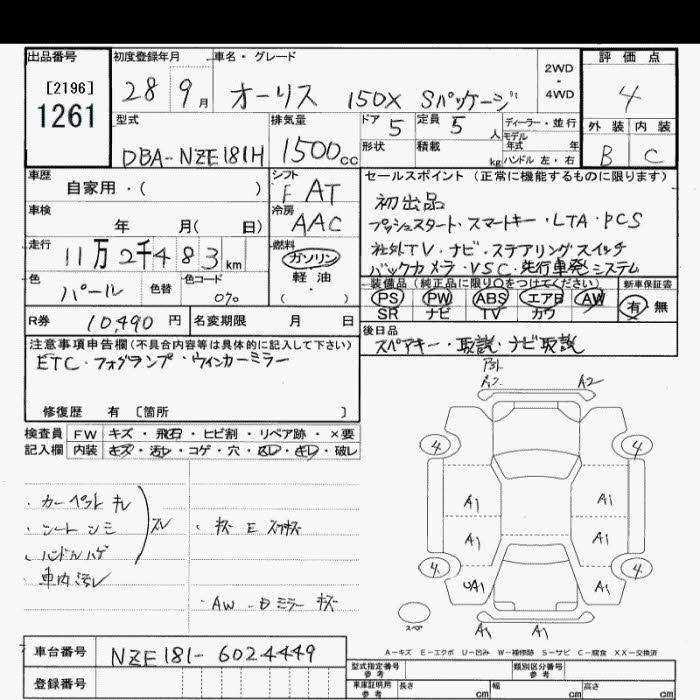 出品番号 初度登録年月 車名・グレード 2WD・4WD 評価点
[2196]
1261
28 9月 オーリス 150X Sパッケージ 4
型式 排気量 ドア 5 定員 5人 ディーラー・並行 外装 内装
DBA-NZE181H 1500cc 形状 積載 kg モデル年式 年 ハンドル 左・右 B C
車歴 シフト セールスポイント (正常に機能するものに限ります)
自家用・( ) F AT 初出品
車検 冷房 プッシュスタート・スマートキー・LTA・PCS
年 月( 日) AAC
走行 燃料 社外TV・ナビ・ステアリングスイッチ
11万2千483km ガソリン バックカメラ・VSC・先行車発システム
色 色替 色コード 軽油 装備品 (純正品に限り○をつけてください) 新車保証書
パール 070 ・( ) PS PW ABS エアB AW 有・無
SR ナビ TV カワ
R券 10,490円 名変期限 月 日 後日品
スペアキー・取説・ナビ取説
注意事項申告欄(不具合内容等は具体的に記入して下さい)
ETC・フォグランプ・ウインカーミラー
修復歴 有 [箇所 ]
検査員 FW キズ・飛石・ヒビ割・リペア跡・×要
記入欄 内装 キズ・汚レ・コゲ・穴・・キレ・破レ
A2 A2
4 4
・カーペット キレ
・シート シミ スレ ・キズ E スリキズ
・ハンドル ハゲ
・車内汚レ
A1 A1
A1 A1
4 4
UA1 A1
・AW・Dミラー キズ
スペア A1 A1
A-キズ E-エクボ U-凹み W-補修跡 S-サビ C-腐食 XX-交換済
車台番号 NZE181-6024449
型式指定番号 参考 類別区分番号 参考
登録番号 車庫証明用 参考 長さ cm 幅 cm 高さ cm